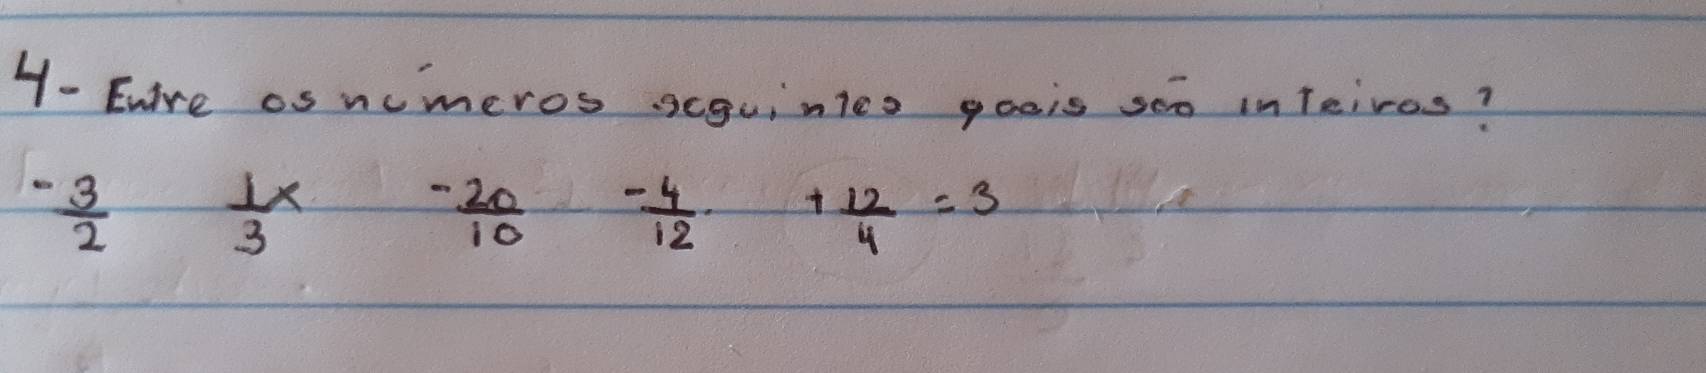 4- Entre os números seguintes quais são inteiros?
-3/2 1/3 x -20/10 -4/12 +12/4 = 3